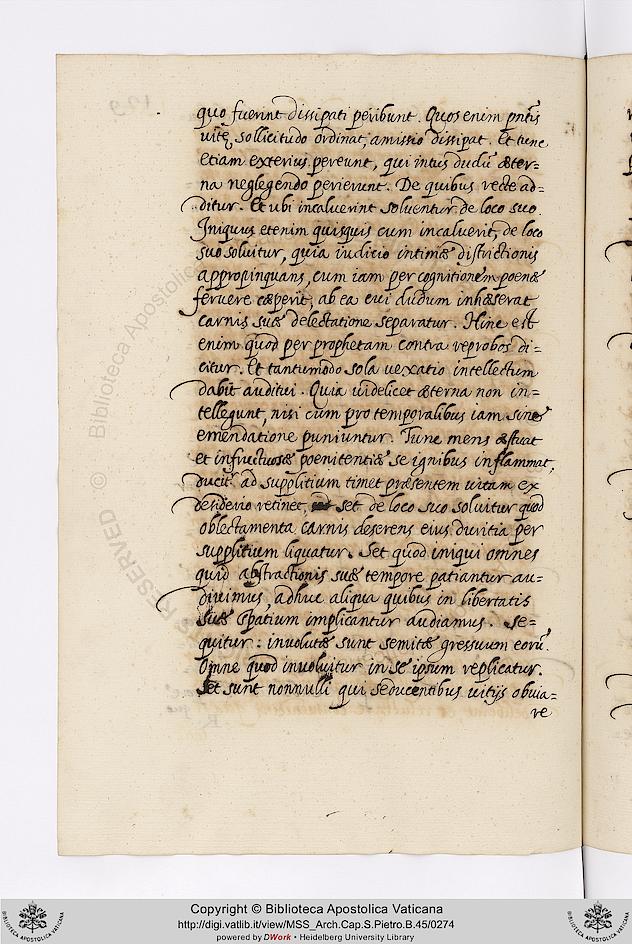 quo fuerint dissipati peribunt. Quos enim pñtis
uitę sollicitudo ordinat, amissio dissipat. Et tunc
etiam exterius pereunt, qui intus dudũ æter=
na neglegendo perierunt. De quibus recte ad=
ditur. Et ubi incaluerint soluentur de loco suo.
Iniquus etenim quisquis cum incaluerit, de loco
suo soluitur, quia iudicio intimæ districtionis
appropinquans, cum iam per cognitionem poenæ
feruere cæperit, ab ea cui dudum inhæserat
carnis suæ delectatione separatur. Hinc est
enim quod per prophetam contra reprobos di=
citur. Et tantumodo sola uexatio intellectum
dabit auditui. Quia uidelicet æterna non in=
tellegunt, nisi cum pro temporalibus iam sine
emendatione puniuntur. Tunc mens æstuat
et infructuosæ poenitentiæ se ignibus inflammat,
duci ad supplitium timet præsentem uitam ex
desiderio retinet, set de loco suo soluitur quod
oblectamenta carnis deserens eius duritia per
supplitium liquatur. Set quod iniqui omnes
quid abstractionis suæ tempore patiantur au=
diuimus, adhuc aliqua quibus in libertatis
suæ spatium implicantur audiamus. Se=
quitur: inuolutæ sunt semitæ gressuum eorũ.
Omne quod inuoluitur in se ipsum replicatur.
Set sunt nonnulli qui seducentibus uitijs obuia=
re
RESERVED © Biblioteca Apostolica
Copyright © Biblioteca Apostolica Vaticana
http://digi.vatlib.it/view/MSS_Arch.Cap.S.Pietro.B.45/0274
powered by DWork • Heidelberg University Library